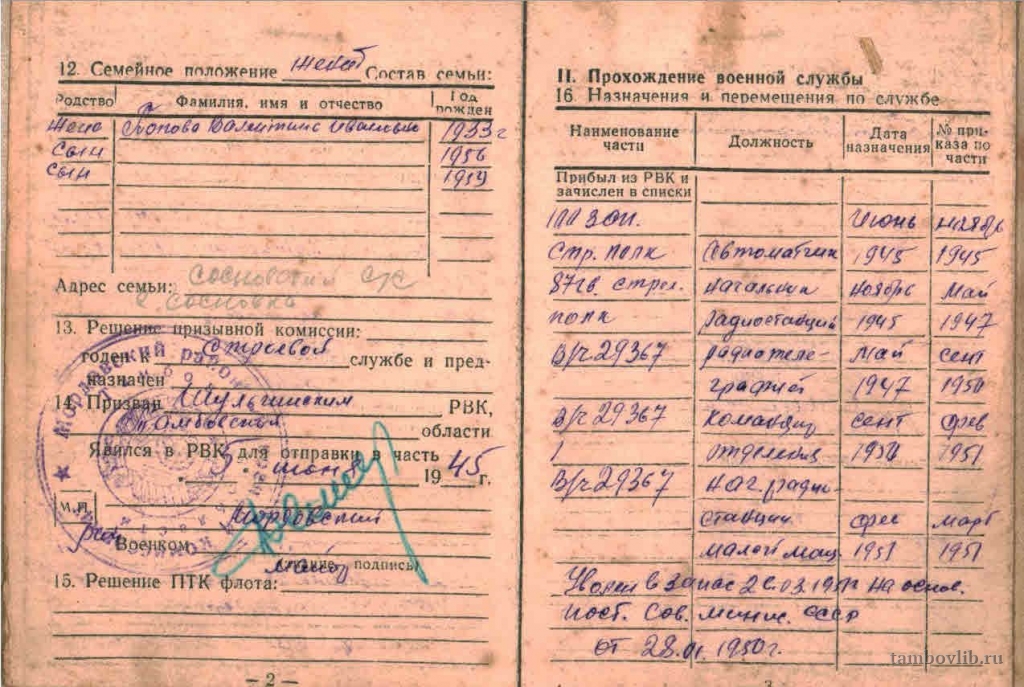 12. Семейное положение женат Состав семьи:
Родство Фамилия, имя и отчество Год рожден
жена Попова Валентина Ивановна 1933 г
сын 1956
сын 1959
Адрес семьи: Сосновский с/с
с Сосновка
13. Решение призывной комиссии:
годен к строевой службе и пред-
назначен
14. Призван Шульгинским РВК,
Тамбовской области
Явился в РВК для отправки в часть
5 июня 1945 г.
М.П. Мордовский
Военком
майор подпись
15. Решение ПТК флота:
— 2 —
II. Прохождение военной службы
16 Назначения и перемещения по службе
Наименование части Должность Дата назначения № при-каза по части
Прибыл из РВК и
зачислен в списки
зап. июнь ноябрь
стр. полк автоматчик 1945 1945
87 гв. стрел. начальник ноябрь май
полк радиостанции 1945 1947
В/ч 29367 радиотеле- май сент
графист 1947 1950
В/ч 29367 командир сент фев
отделения 1950 1951
В/ч 29367 нач. радио
станции фев март
малой мощ. 1951 1951
Уволен в запас на основ.
пост. Сов. минис. СССР
от 1950 г.
3
tambovlib.ru